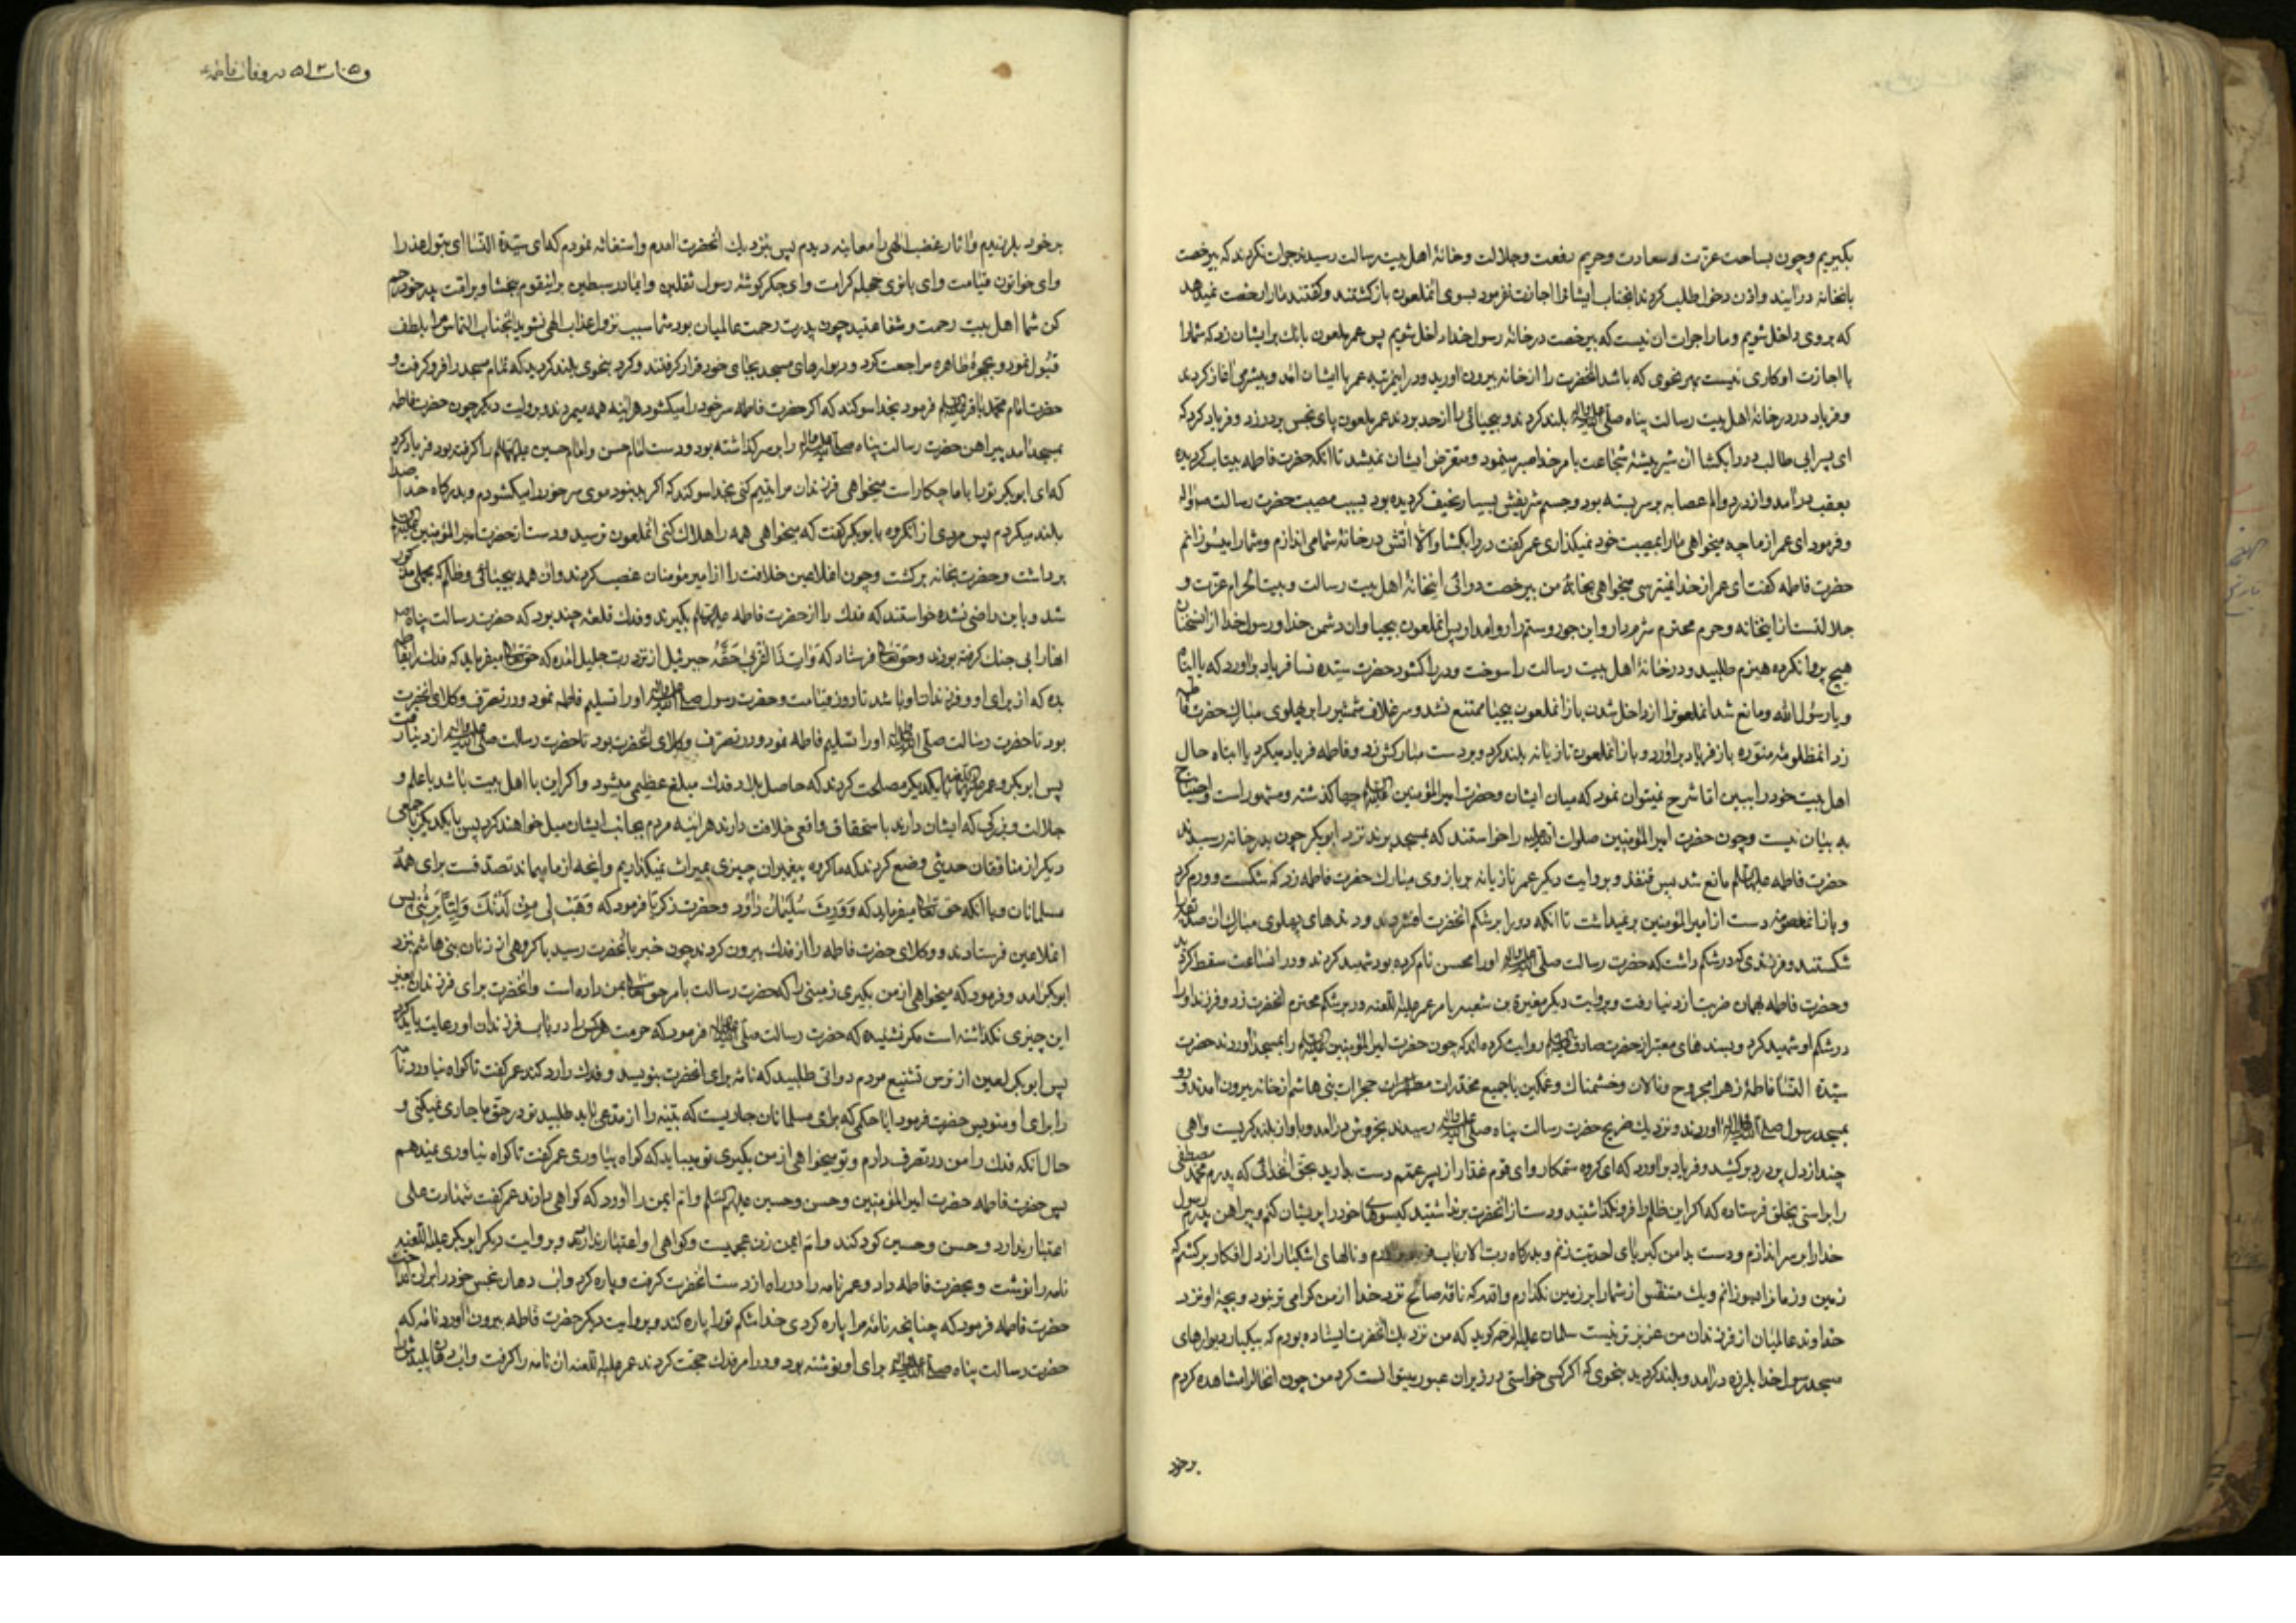 بکیریم وچون بساحت عزت و سعادت وحریم رفعت وجلالت وخانهٔ اهل بیت رسالت رسیدند جرات نکردند که بیرخصت
بانخانه درایند واذن دخول طلب کردند انجناب ایشانرا اجازت نفرمود بسوی انملعون بازکشتند وکفتند مارا رخصت نمیدهد
که بروی داخل شویم ومارا جرات ان نیست که بیرخصت درخانهٔ رسول خدا داخل شویم پس عمر ملعون بانك برایشان زد که شمارا
با اجازت او کاری نیست بهر نحوی که باشد انحضرت را ازخانه بیرون اورید ودراین مرتبه عمر با ایشان امد وبیشرمی اغاز کردند
وفریاد در درخانهٔ اهل بیت رسالت پناه صلی الله علیه واله بلند کردند وبیحیائی را ازحد بردند عمر ملعون پای نجس بر در زد وفریاد کرد که
ای پسر ابی طالب در را بکشا ان شیر بیشهٔ شجاعت بامر خدا صبر مینمود ومتعرض ایشان نمیشد تا انکه حضرت فاطمه بیتاب کردیده
بعقب در امد وازدرد والم عصابه بر سر بسته بود وجسم شریفش بسیار نحیف کردیده بود بسبب مصیبت حضرت رسالت
وفرمود ای عمر ازما چه میخواهی مارا بمصیبت خود نمیکذاری عمر کفت در را بکشا والا اتش در خانهٔ شما می اندازم وشمارا میسوزانم
حضرت فاطمه کفت ای عمر از خدا نمیترسی میخواهی بخانهٔ من بیرخصت درائی اینخانهٔ اهل بیت رسالت وبیت الحرام عزت و
جلالتست ازاینخانه وحرم محترم شرم دار واین جور وستم را روا مدار پس انملعون بیحیا وان دشمن خدا ورسول خدا از انسخنان
هیچ پروا نکرده هیزم طلبید ودرخانهٔ اهل بیت رسالت را سوخت ودررا کشود حضرت سیدهٔ نسا فریاد براورد که یا ابتاه
ویا رسول الله ومانع شد انملعونرا از داخل شدن باز انملعون بیحیا ممتنع نشد وسر غلاف شمشیر را بر پهلوی مبارك حضرت فاطمه
زد انمظلومهٔ منوره باز فریاد براورد وباز انملعون تازیانه بلند کرد وبر دست مبارکش زد وفاطمه فریاد میکرد یا ابتاه حال
اهل بیت خود را ببین اما شرح نمیتوان نمود که میان ایشان وحضرت امیرالمؤمنین علیه السلام چها کذشته ومشهور است واحتیاج
به بیان نیست وچون حضرت امیرالمؤمنین صلوات الله علیه را خواستند که بمسجد برند نزد ابوبکر چون بدر خانه رسیدند
حضرت فاطمه علیها السلام مانع شد پس قنفذ وبروایت دیکر عمر تازیانه بر بازوی مبارك حضرت فاطمه زد که شکست وورم کرد
وباز انمعصومه دست از امیرالمؤمنین برنمیداشت تا انکه در را بر شکم انحضرت افشردند ودندهای پهلوی مبارك ان
شکستند وفرزندی که درشکم داشت که حضرت رسالت صلی الله علیه واله اورا محسن نام کرده بود شهید کردند ودر انساعت سقط کردید
وحضرت فاطمه بهمان ضربت از دنیا رفت وبروایت دیکر مغیرة بن شعبه بامر عمر علیه اللعنه در بر شکم محترم انحضرت زد وفرزند اورا
درشکم او شهید کرد وبسندهای معتبر از حضرت صادق علیه السلام روایت کرده اند که چون حضرت امیرالمؤمنین علیه السلام را بمسجد اوردند حضرت
سیدة النسا فاطمهٔ زهرا مجروح ونالان وخشمناك وغمکین باجمیع مخدرات مطهرات حجرات بنی هاشم از خانه بیرون امدند ورو
بمسجد رسول صلی الله علیه واله اوردند ونزدیك ضریح حضرت رسالت پناه صلی الله علیه واله رسیدند بخروش درامد وباواز بلند کریست واهی
چند از دل پر درد برکشید وفریاد براورد که ای کروه ستمکار وای قوم غدار از پسر عمم دست بدارید بحق انخدائی که پدرم محمد مصطفی
را براستی بخلق فرستاده که اکر این ظلم را فرو نکذاشتید ودست از انحضرت برنداشتید کیسوهای خود را پریشان کنم وپیراهن پدرم رسول
خدا را بر سر اندازم ودست بدامن کبریای احدیت زنم وبدرکاه رب الارباب ونالهای اشکبار از دل افکار برکشم که
زمین وزمانرا بسوزانم ویك متنفس از شما را بر زمین نکذارم والله که ناقهٔ صالح نزد خدا از من کرامی تر نبود وبچهٔ او نزد
خداوند عالمیان از فرزندان من عزیز تر نیست سلمان علیه الرحمه کوید که من نزدیك انحضرت ایستاده بودم که بیکبار دیوارهای
مسجد رسول خدا بلرزه درامد وبلند کردید بنحوی که اکر کسی خواستی در زیر ان عبور میتوانست کرد من چون انحال را مشاهده کردم
برخود
در وفات فاطمه
برخود بلرزیدم واثار غضب الهی را معاینه دیدم پس بنزدیك انحضرت امدم واستغاثه نمودم که ای سیدة النسا ای بتول عذرا
وای خواتون قیامت وای بانوی حجلهٔ کرامت وای جکر کوشهٔ رسول ثقلین وایمادر سبطین براینقوم ببخشا وبر امت پدر خود رحم
کن شما اهل بیت رحمت وشفاعتید چون پدرت رحمت عالمیان بود شما سبب نزول عذاب الهی نشوید انجناب التماس مرا بلطف
قبول نمود وبحجرهٔ طاهره مراجعت کرد ودیوارهای مسجد بجای خود قرار کرفتند وکرد بنحوی بلند کردید که تمام مسجد را فرو کرفت و
حضرت امام محمد باقر علیه السلام فرمود بخدا سوکند که اکر حضرت فاطمه سر خود را میکشود هراینه همه میمردند وبروایت دیکر چون حضرت فاطمه
بمسجد امد پیراهن حضرت رسالت پناه صلی الله علیه واله را بر سر کذاشته بود ودست امام حسن وامام حسین علیهما السلام را کرفته بود فریاد کرد
که ای ابوبکر تورا باما چکار است میخواهی فرزندان مرا یتیم کنی بخدا سوکند که اکر بد نبود موی سر خود را میکشودم وبدرکاه خدا صدا
بلند میکردم پس مردی از انکروه بابوبکر کفت که میخواهی همه را هلاك کنی انملعون ترسید ودست از حضرت امیرالمؤمنین علیه السلام
برداشت وحضرت بخانه برکشت وچون انملاعین خلافت را از امیرمؤمنان غصب کردند وان همه بیحیائی وظلم که مجملی مذکور
شد وباین راضی نشده خواستند که فدك را از حضرت فاطمه علیها السلام بکیرند وفدك قلعهٔ چند بود که حضرت رسالت پناه ص
انهارا بی جنك کرفته بودند وحق تعالی فرستاد که وَاٰتِ ذَا الْقُرْبیٰ حَقَّهُ جبرئیل از نزد رب جلیل امده که حق تعالی میفرماید که فدك بفاطمه
بده که از برای او وفرزندان او باشد تا روز قیامت وحضرت رسول صلی الله علیه واله اورا تسلیم فاطمه نمود ودر تصرف وکلای انحضرت
بود تا حضرت رسالت صلی الله علیه واله اورا تسلیم فاطمه نمود ودر تصرف وکلای انحضرت بود تا حضرت رسالت صلی الله علیه واله از دنیا رفت
پس ابوبکر وعمر بایکدیکر مصلحت کردند که حاصل بلاد فدك مبلغ عظیمی میشود واکر این با اهل بیت باشد باعلم و
جلالت وبزرکی که ایشان دارند باستحقاق واقعی خلافت دارند هراینه مردم بجانب ایشان میل خواهند کرد پس بایکدیکر باجمعی
دیکر از منافقان حدیثی وضع کردند که ما کروه پیغمبران چیزی بمیراث نمیکذاریم وانچه ازما بماند تصدقست برای همهٔ
مسلمانان وبا انکه حق تعالی میفرماید که وَوَرِثَ سُلَیْمٰانُ دٰاوُدَ وحضرت زکریا فرمود که وَهَبْ لی مِنْ لَدُنْكَ وَلِیًّا یَرِثُنی پس
انملاعین فرستادند ووکلای حضرت فاطمه را از فدك بیرون کردند چون خبر بانحضرت رسید با کروهی از زنان بنی هاشم نزد
ابوبکر امد وفرمود که میخواهی از من بکیری زمینی را که حضرت رسالت بامر حق تعالی بمن داده است وانحضرت برای فرزندان بغیر
این چیزی نکذاشته است مکر نشنیدهٔ که حضرت رسالت صلی الله علیه واله فرمود که حرمت هرکس را در باب فرزندان او رعایت باید کرد
پس ابوبکر لعین از ترس تشنیع مردم دواتی طلبید که نامه برای انحضرت بنویسد وفدك را رد کند عمر کفت تا کواه نیاورد نامه
را برای او منویس حضرت فرمود ایا حکمی که برای مسلمانان جاریست که بینه را از مدعی باید طلبید تو در حق ما جاری نمیکنی و
حال انکه فدك را من در تصرف دارم وتو میخواهی از من بکیری تو میباید که کواه بیاوری عمر کفت تا کواه نیاوری نمیدهم
پس حضرت فاطمه حضرت امیرالمؤمنین وحسن وحسین علیهم السلم وام ایمن را اورد که کواهی دادند عمر کفت شهادت علی
اعتبار ندارد وحسن وحسین کودکند وام ایمن زن عجمیست وکواهی او اعتبار ندارد وبروایت دیکر ابوبکر علیه اللعنه
نامه را نوشت وبحضرت فاطمه داد وعمر نامه را در راه از دست انحضرت کرفت وپاره کرد واب دهان نجس خود را بران انداخت
حضرت فاطمه فرمود که چنانچه نامهٔ مرا پاره کردی خدا شکم تورا پاره کند وبروایت دیکر حضرت فاطمه بیرون اورد نامهٔ که
حضرت رسالت پناه صلی الله علیه واله برای او نوشته بود ودر امر فدك حجت کردند عمر علیه اللعنه ان نامه را کرفت واب دهان پلیدش را